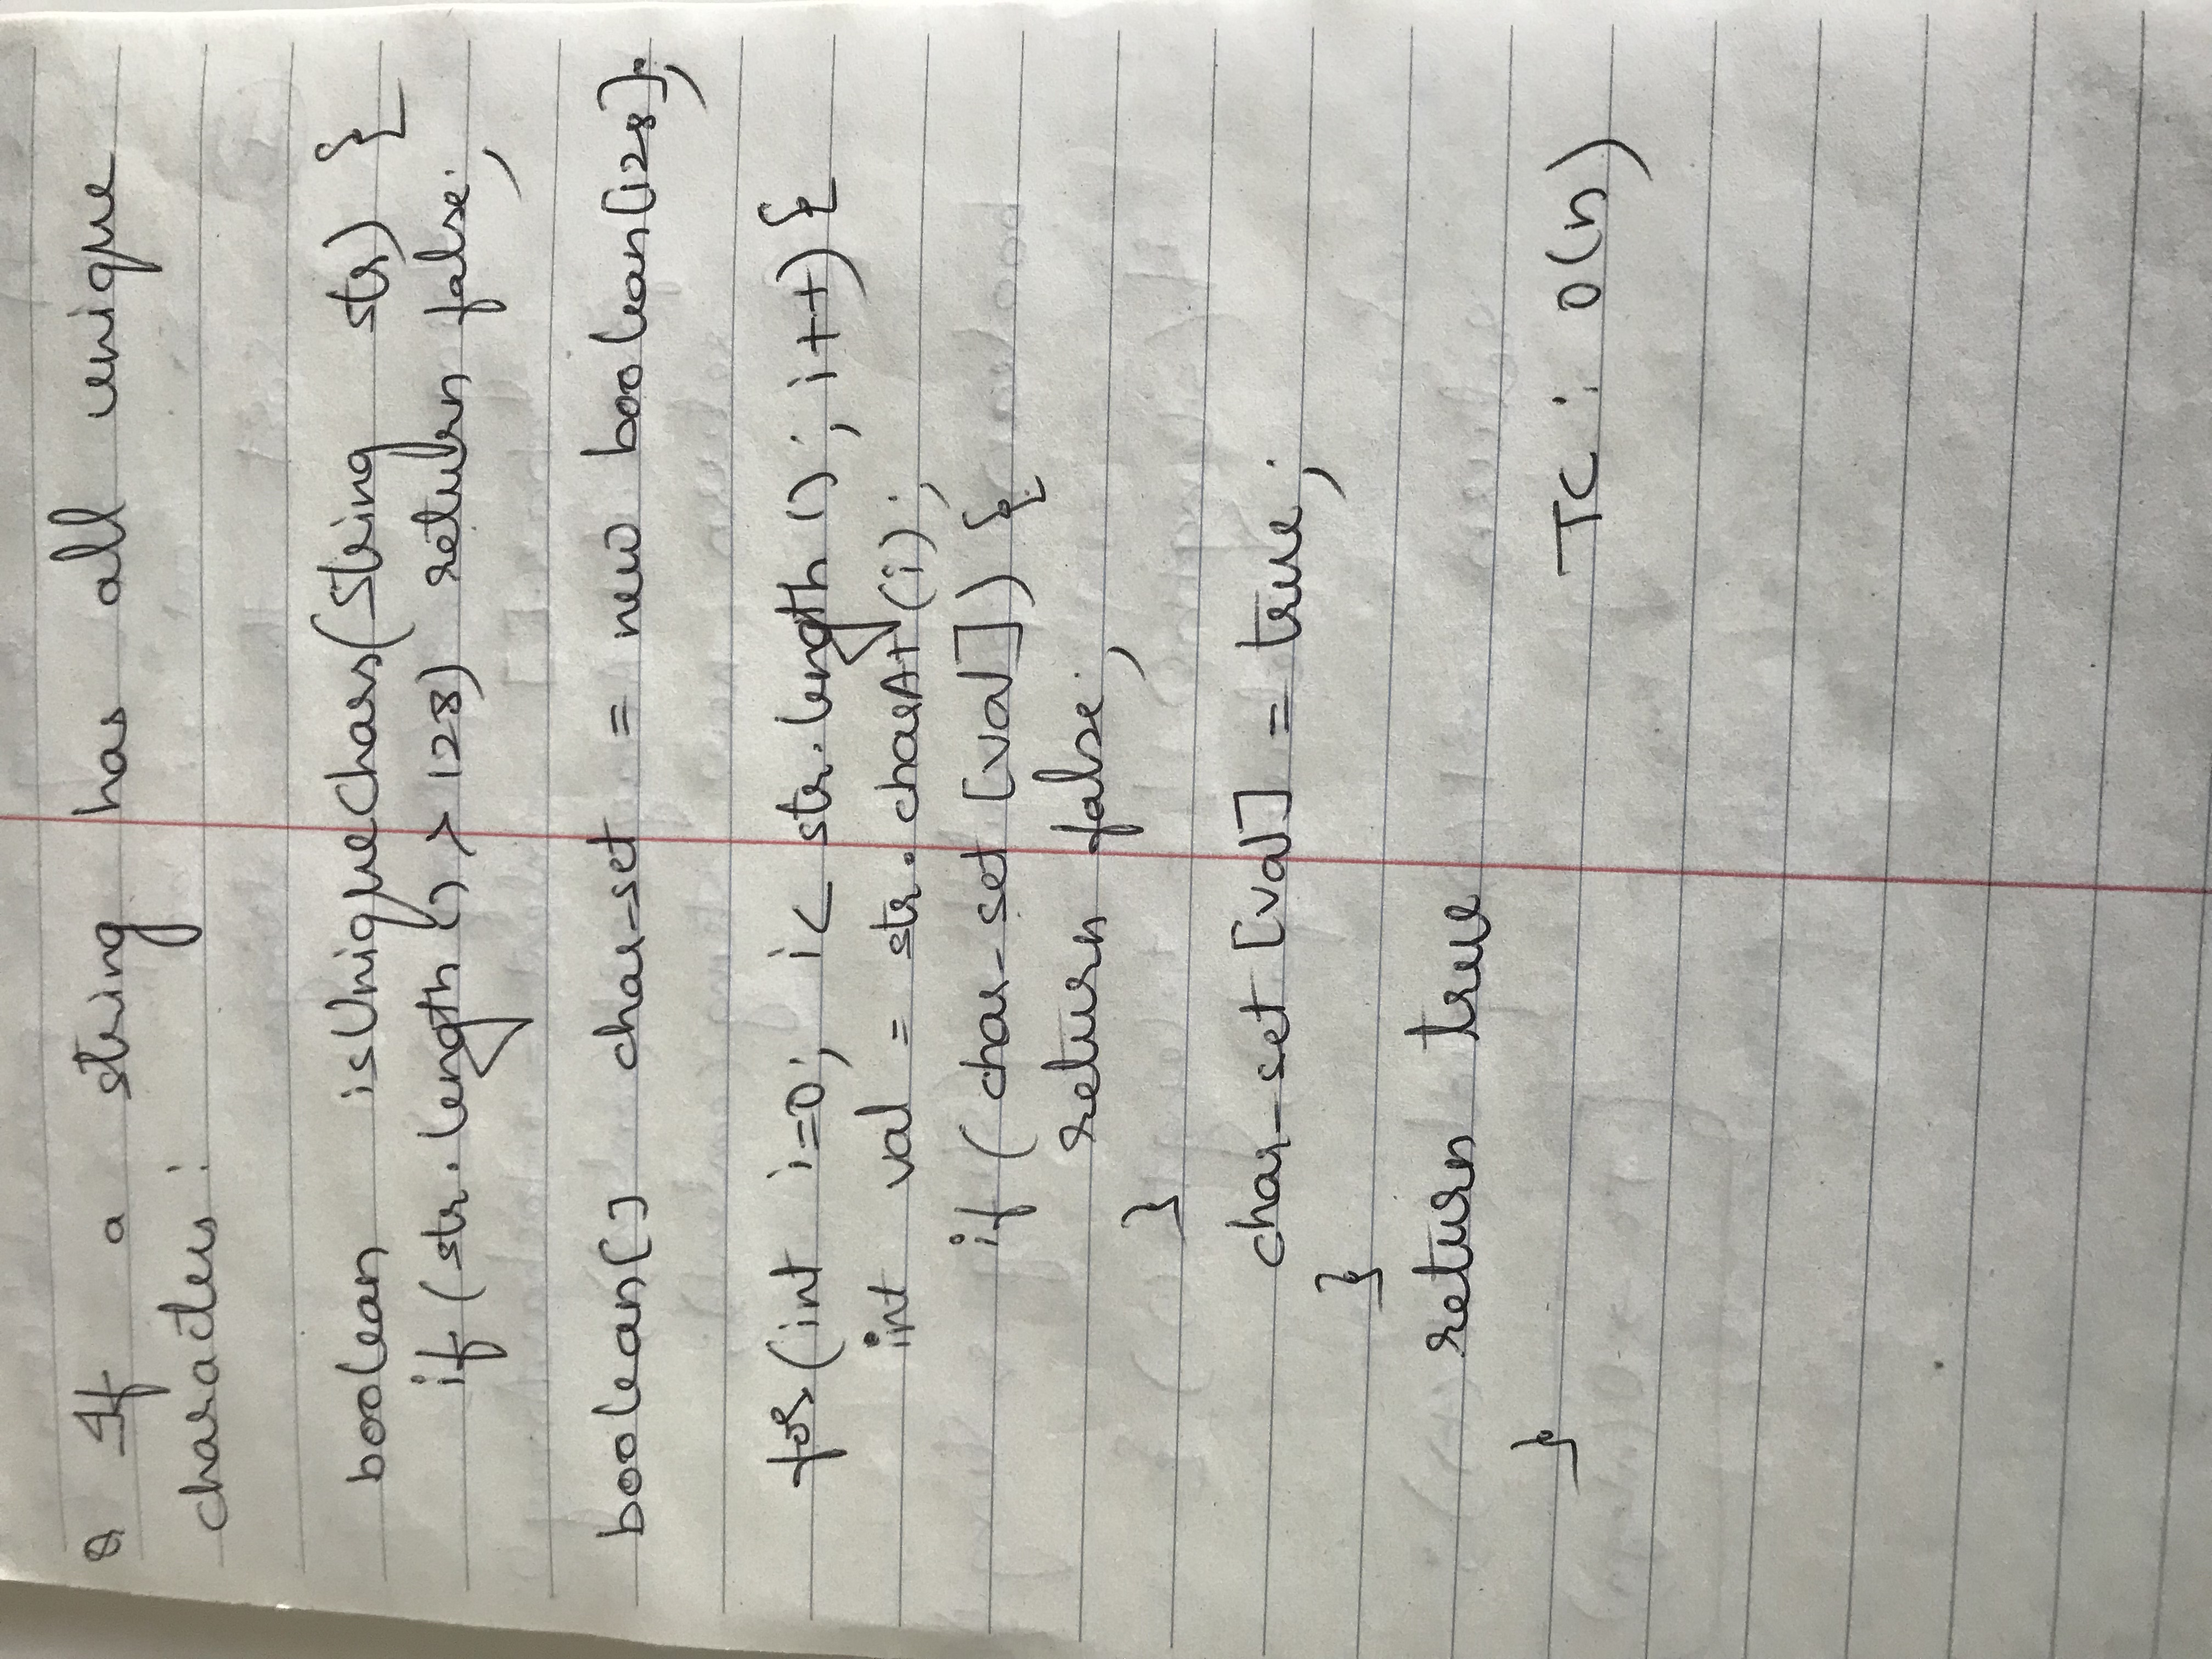 Q If a string has all unique
characters:
boolean isUniqueChars(String str) {
if (str.length () > 128) return false;
boolean[] char_set = new boolean[128];
for (int i=0; i< str.length (); i++) {
int val = str.charAt (i);
if ( char_set [val]) {
return false;
}
char_set [val] = true;
}
return true
}
TC : O(n)